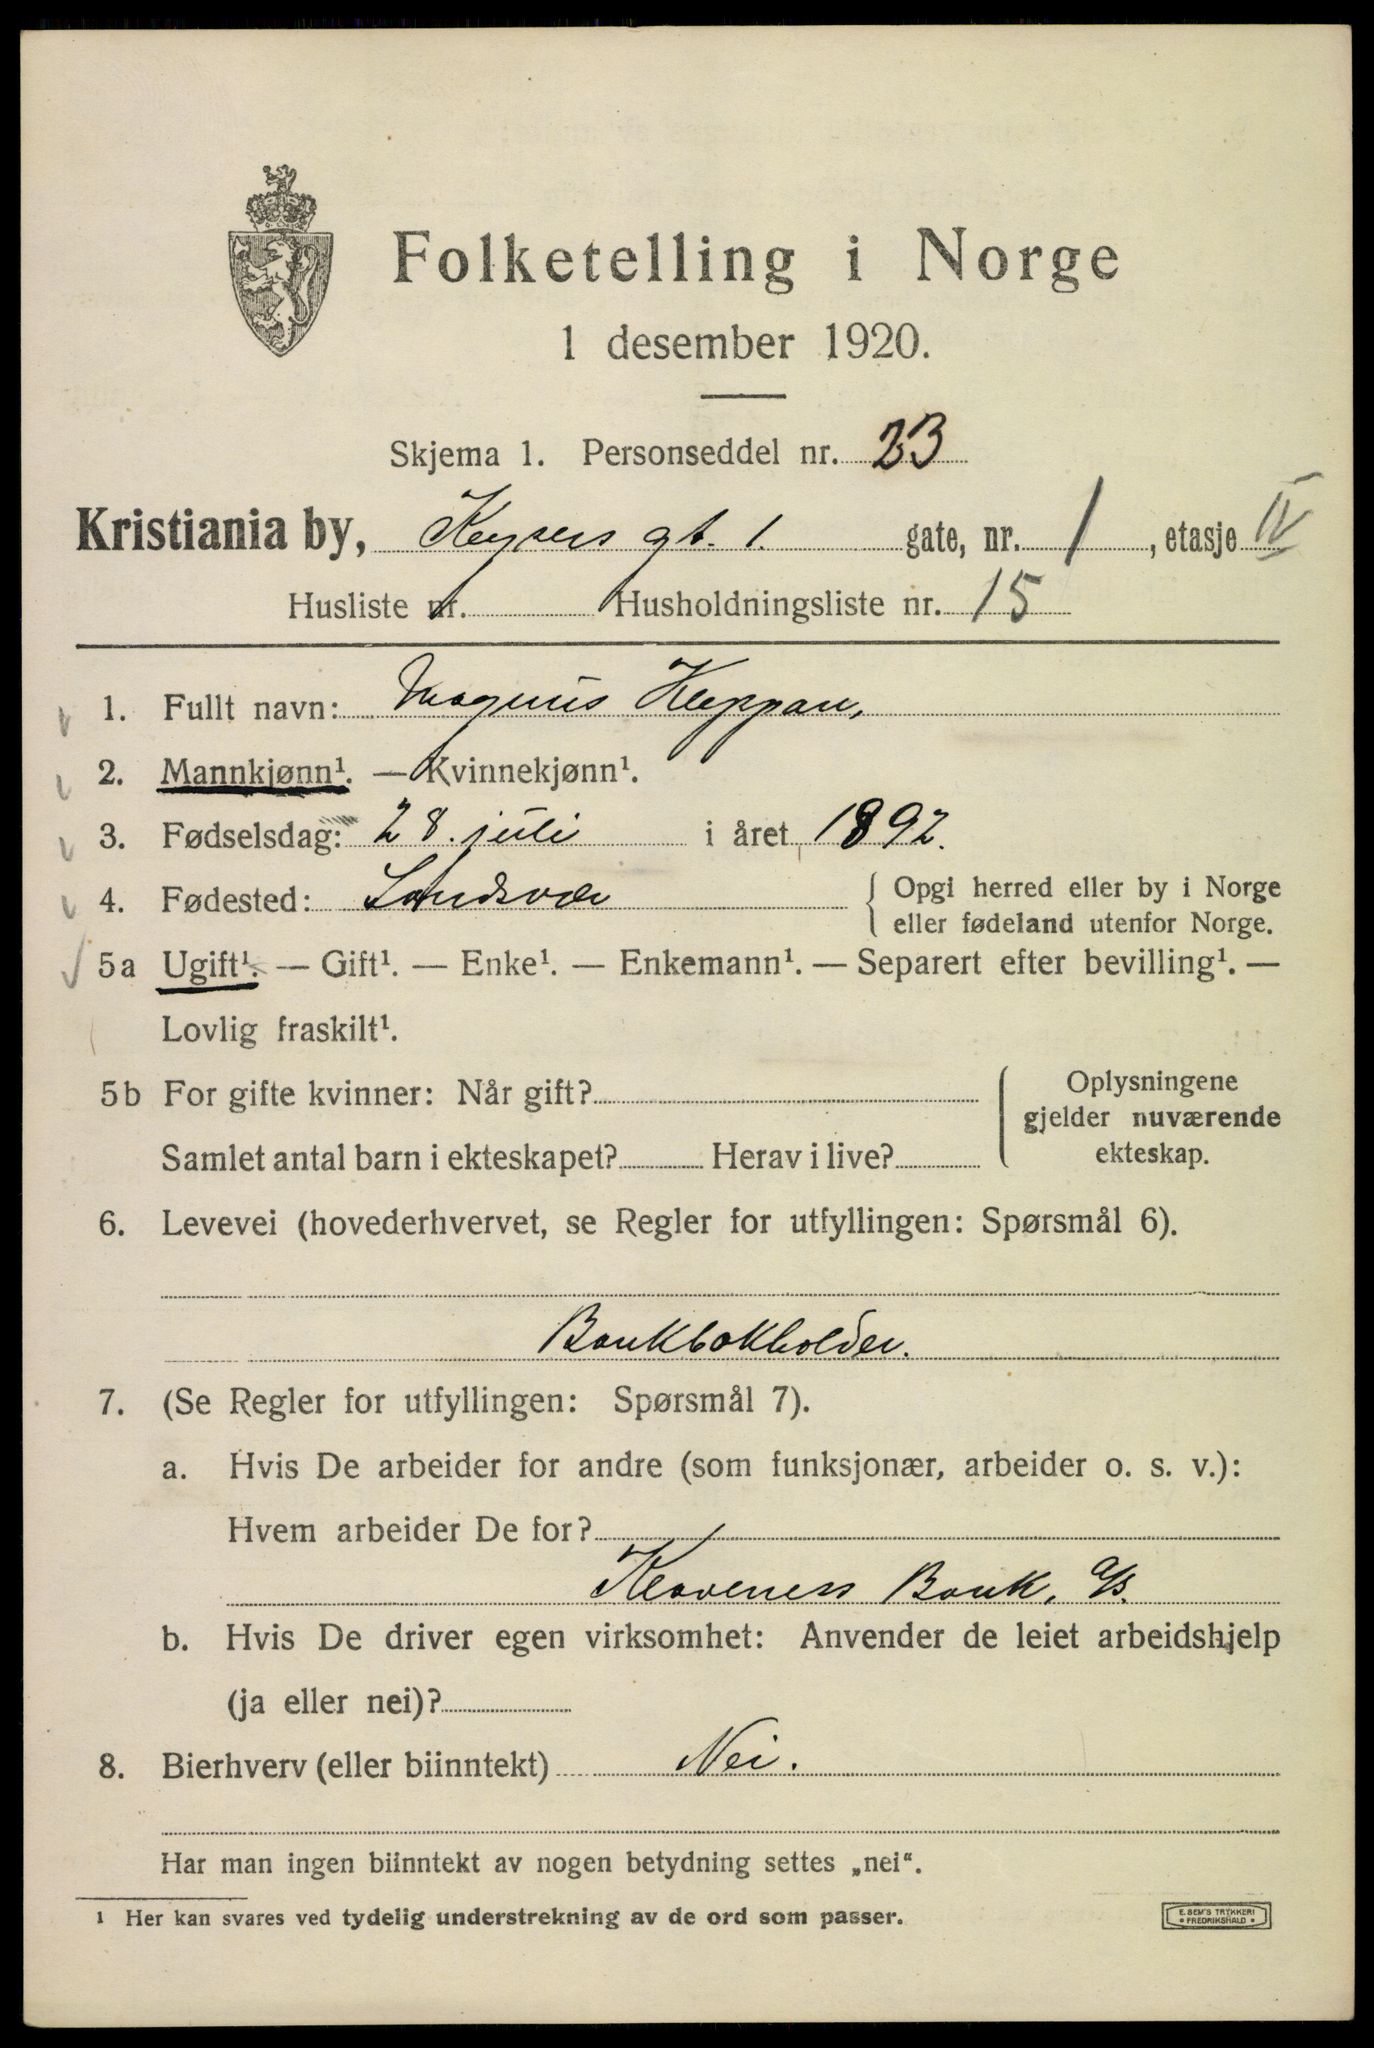 Folketelling i Norge
1 desember 1920.
Skjema 1. Personseddel nr. 23
Kristiania by, Keysers gt. 1. gate, nr. 1, etasje IV
Husliste nr. Husholdningsliste nr. 15
1. Fullt navn: Magnus Kleppan,
2. Mannkjønn¹. — Kvinnekjønn¹.
3. Fødselsdag: 28. juli i året 1892.
4. Fødested: Sandsvær { Opgi herred eller by i Norge
eller fødeland utenfor Norge.
5a Ugift¹. — Gift¹. — Enke¹. — Enkemann¹. — Separert efter bevilling¹. —
Lovlig fraskilt¹.
5b For gifte kvinner: Når gift? Oplysningene
gjelder nuværende
Samlet antal barn i ekteskapet? Herav i live? ekteskap.
6. Levevei (hovederhvervet, se Regler for utfyllingen: Spørsmål 6).
Bankbokholder.
7. (Se Regler for utfyllingen: Spørsmål 7).
a. Hvis De arbeider for andre (som funksjonær, arbeider o. s. v.):
Hvem arbeider De for?
Klaveness Bank, A/S.
b. Hvis De driver egen virksomhet: Anvender de leiet arbeidshjelp
(ja eller nei)?
8. Bierhverv (eller biinntekt) Nei.
Har man ingen biinntekt av nogen betydning settes „nei".
1 Her kan svares ved tydelig understrekning av de ord som passer.
E. SEM'S TRYKKERI
• FREDRIKSHALD •